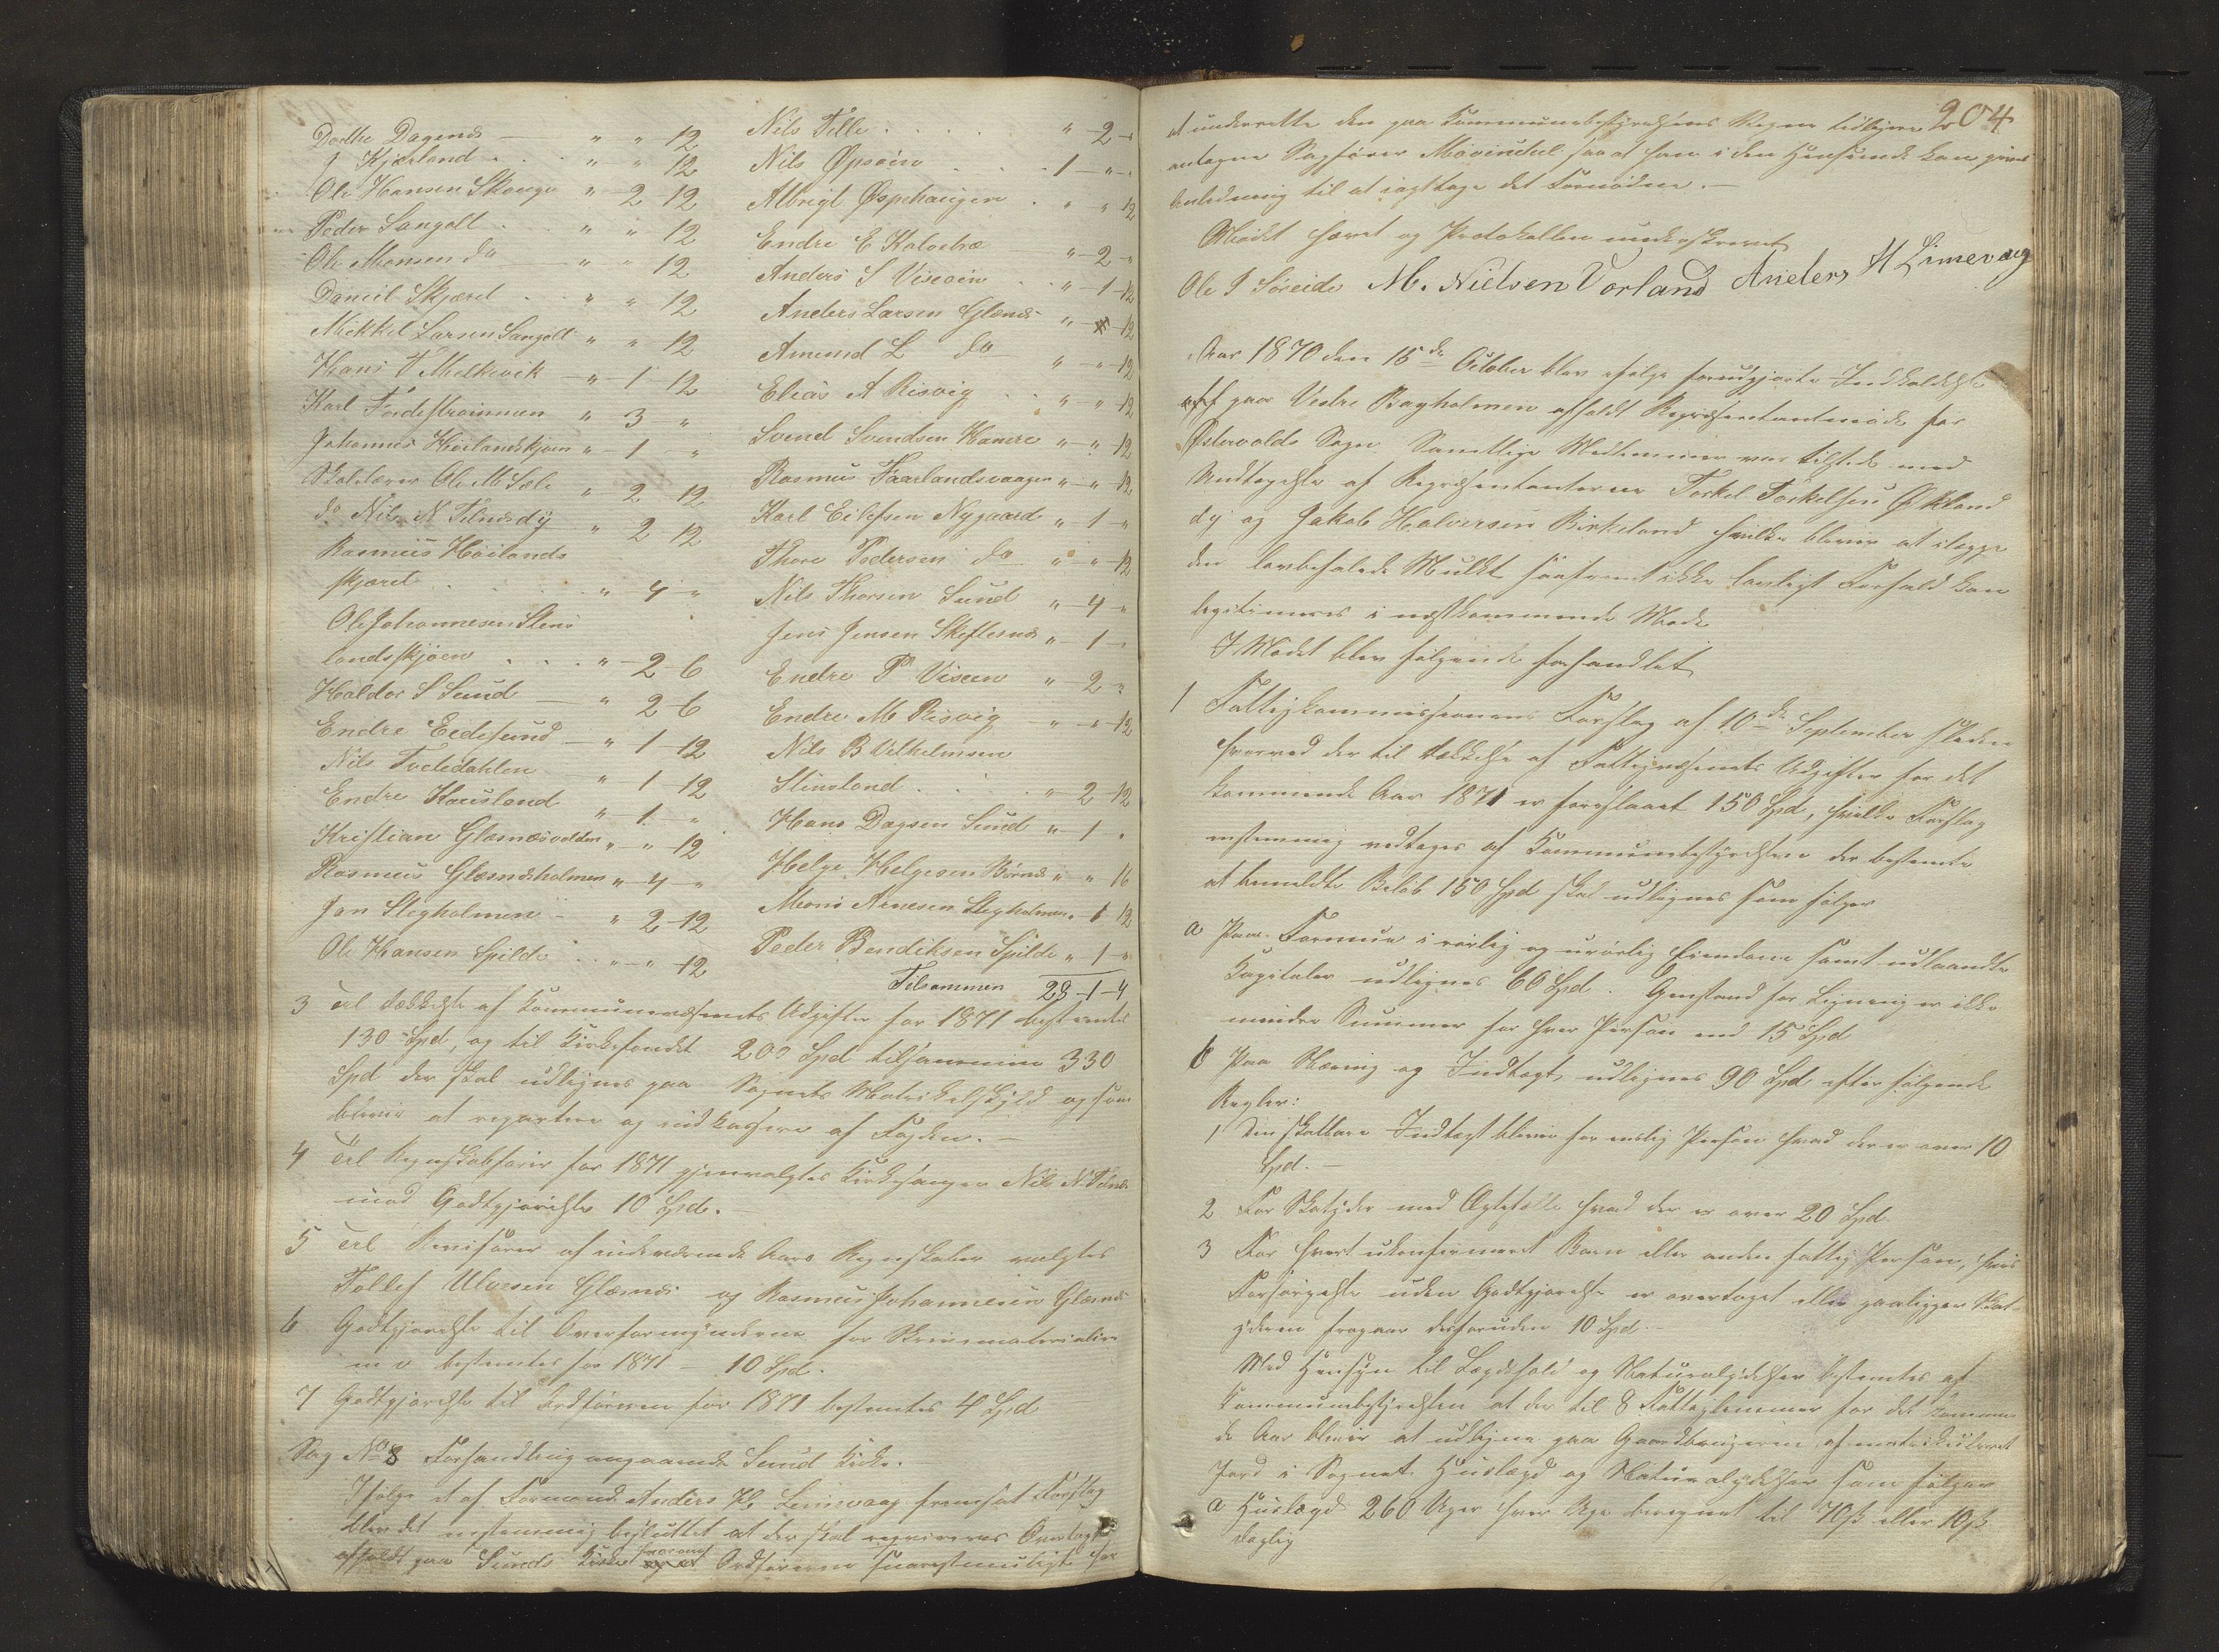 Dorthe Dagends — " " 12
J Kjærland . . " " 12
Ole Hansen Skauge " 2 12
Peder Sangolt . . " " 12
Ole Monsen do — " " 12
Daniel Skjæret . . " " 12
Mikkel Larsen Sangolt " " 12
Hans T Melkevik — " 1 12
Karl Fordestrømmen " 3 "
Johannes Høilandskjøen " 1 "
Skolelærer Ole M Sæle " 2 12
do Nils N Telnæs dy " 2 12
Rasmus Høilands
skjæret . . . " 4 "
Ole Johannesen Steins
landsskjøen . . . " 2 6
Haldor S Sund — " 2 6
Endre Eidesund — " 1 12
Nils Tveitedahlen — " 1 12
Endre Kausland " 1 "
Kristian Glæsnæsvolden " " 12
Rasmus Glæsnæsholmen " 4 "
Jan Stegholmen — " 2 12
Ole Hansen Spilde . . " " 12
Nils Telle . . . . " 2 "
Nils Øpsøen . . . 1 " "
Albrigt Øspehaugen . " " 12
Endre E Kalvetræ " 2 "
Anders S Viseøen . . " 1 12
Anders Larsen Glæsnæs " " 12
Amund L do " " 12
Elias A Risvig . . " " 12
Svend Svendsen Hamre " " 12
Rasmus Faarlandsvaagen " " 12
Karl Eilefsen Nygaard " 1 "
Thore Pedersen do " " 12
Nils Thorsen Sund " 4 "
Jens Jensen Skeflesnæs " 1 "
Endre P Viseøen " 2 "
Endre M Risvig " " 12
Nils B Vilhelmsen
Steinsland . . . . " 2 12
Hans Dagsen Sund " 1 "
Helge Helgesen Børnæs " " 16
Mons Arnesen Stegholmen " 1 12
Peder Bendiksen Spilde " 1 "
Tilsammen 28 1 4
3 Til Dækkelse af Kommunevæsenets Udgifter for 1871 bestemtes
130 Spd, og til Kirkefondet 200 Spd tilsammen 330
Spd der skal udlignes paa Sognets Matrikelskyld og som
bliver at repartere og indkassere af Fogden. —
4 Til Regnskabsfører for 1871 gjenvalgtes Kirkesanger Nils N Telnæs
mod Godtgjørelse 10 Spd. —
5 Til Revisorer af indeværende Aars Regnskaber valgtes
Tollef Ulvesen Glæsnæs og Rasmus Johannesen Glæsnæs
6 Godtgjørelse til Overformynderne for Skrivematerialier
m v bestemtes for 1871 — 10 Spd.
7 Godtgjørelse til Ordføreren for 1871 bestemtes 4 Spd
Sag No 8 Forhandling angaaende Sund Kirke. —
Ifølge et af Formand Anders H. Limevaag fremsat Forslag
blev det enstemmig besluttet at der skal requireres Overtaxt
afholdt paa Sunds Kirke Ordføreren snarestmuligt har
204
at underrette den paa Kommunebestyrelsens Vegne tidligere
antagne Sagfører Mowinckel saa at han i den Henseende kan gives
Anledning til at iagttage det Fornødne. —
Mødet hævet og Protokollen underskrevet
Ole J Søreide M. Nielsen Vorland Anders H Limevaag
Aar 1870 den 15de October blev efter forudgjorte Indkaldelse
paa Vestre Bagholmen afholdt Repræsentantmøde for
Østervolds Sogn. Samtlige Medlemmer var tilstede med
Undtagelse af Repræsentanterne Torkel Torkelsen Økland
dy og Jakob Halvorsen Birkeland hvilke bliver at ilægge
den lovbefalede Mulkt saafremt ikke lovligt Forfald kan
legitimeres i næstkommende Møde
I Mødet blev følgende forhandlet
1 Fattigkommissionens Forslag af 10de September sidstleden
hvorved der til Dækkelse af Fattigvæsenets Udgifter for det
kommende Aar 1871 er foreslaaet 150 Spd, hvilke Forslag
enstemmig vedtages af Kommunebestyrelsen der bestemte
at bemeldte Beløb 150 Spd skal udlignes som følger
a Paa Formue i rørlig og urørlig Eiendom samt udlaandte
Kapitaler udlignes 60 Spd. Gjenstand for Ligning er ikke
mindre Summer for hver Person end 15 Spd
b Paa Næring og Indtægt udlignes 90 Spd efter følgende
Regler:
1 Den skatbare Indtægt bliver for enslig Person hvad der er over 10
Spd. —
2 For Skatyder med Ægtefælle hvad der er over 20 Spd.
3 For hvert ukonfirmeret Barn eller anden fattig Person, hvis
Forsørgelse uden Godtgjørelse er overtaget eller paaligger Skat-
yderen fragaar desforuden 10 Spd. —
Med Hensyn til Lægdehold og Naturalydelser bestemtes af
Kommunebestyrelsen at der til 8 Fattiglemmer for det kommen-
de Aar bliver at udligne paa Gaardbrugerne af matrikuleret
Jord i Sognet Huslægd og Naturalydelser som følger
a Huslægd 260 Uger hver Uge beregnet til 70ß eller 10ß
daglig